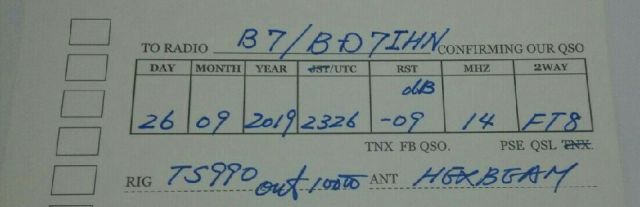 TO RADIO B7/BD7IHN CONFIRMING OUR QSO
DAY MONTH YEAR JST/UTC RST MHZ 2WAY
dB
26 09 2019 2326 -09 14 FT8
TNX FB QSO. PSE QSL TNX.
RIG TS990 out 100W ANT HEXBEAM